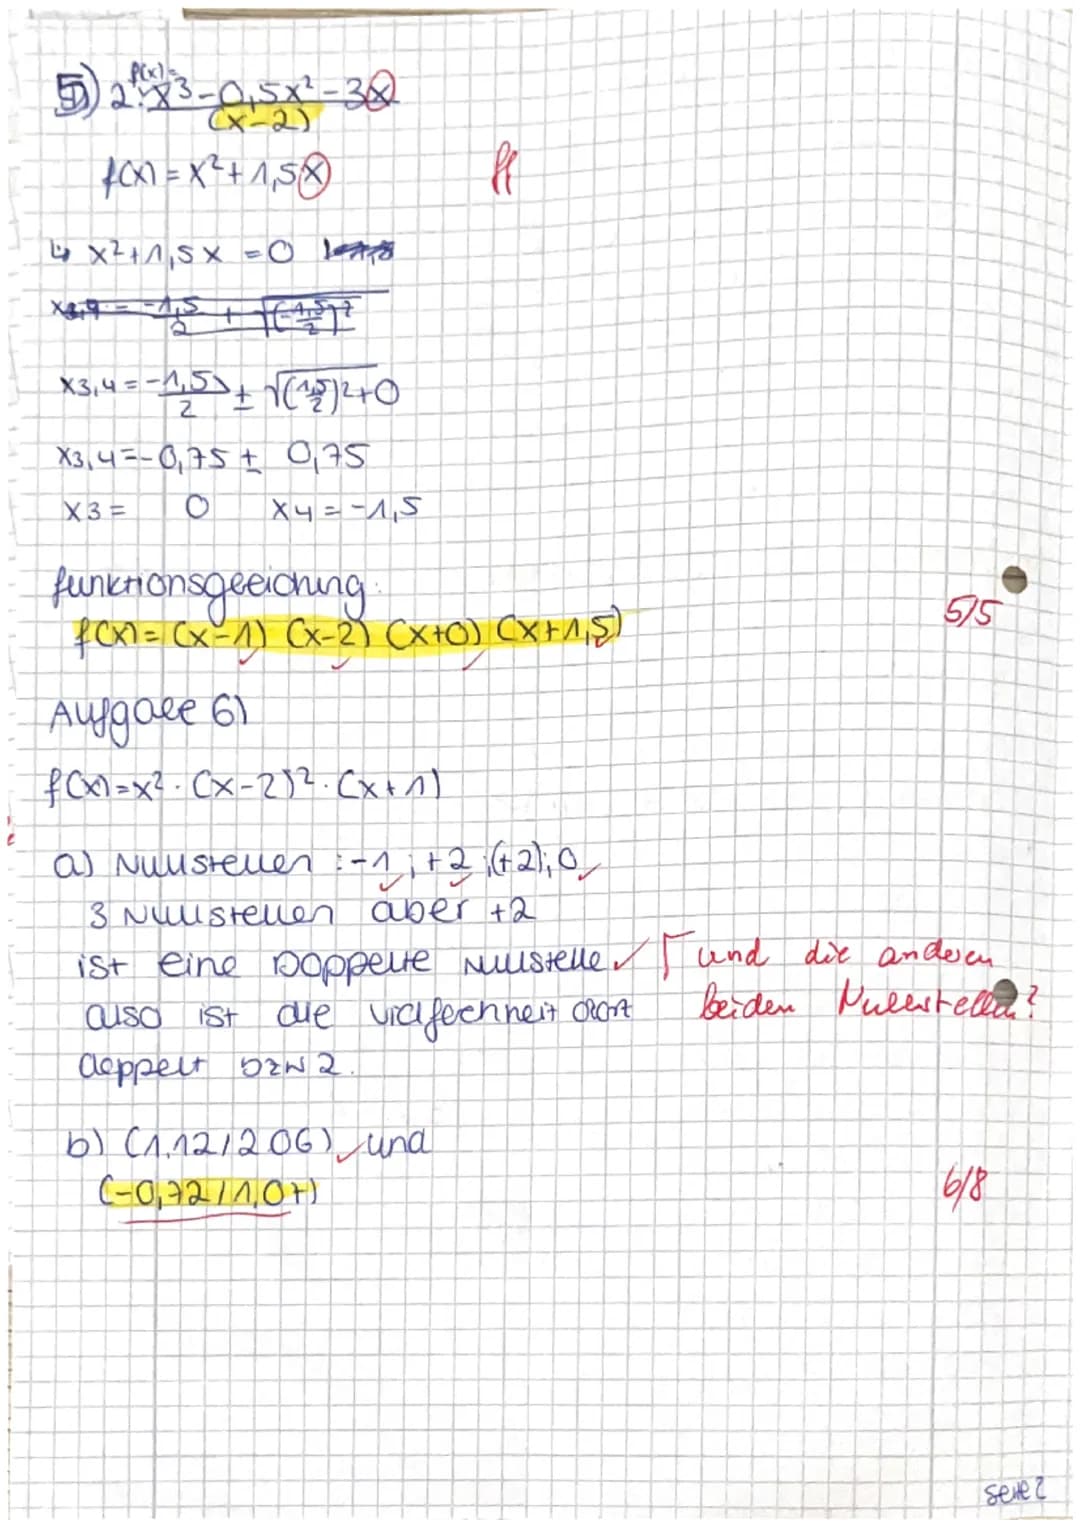 5) 2. f(x)= x³-0,5x²-3x
(x-2)
f(x) = x²+1,5x
ff
↳ x²+1,5x = 0
x3,4 = -1,5/2 + √(-1,5/2)²
x3,4 = -1,5/2 ± √(1,5/2)²+0
x3,4 = -0,75 ± 0,75
x3 = 0 x4 = -1,5
funktionsgleichung:
f(x) = (x-1) (x-2) (x+0) (x+1,5)
5/5
Aufgabe 6)
f(x)=x² · (x-2)² · (x+1)
a) Nullstellen : -1 ; +2 ; (+2); 0
3 Nullstellen aber +2
ist eine Doppelte Nullstelle ✓ Γ und die anderen
also ist die vielfachheit dort beiden Nullstellen?
doppelt bzw 2.
b) (1,12/2,06) ✓ und
(-0,72/1,07)
6/8
Seite 2